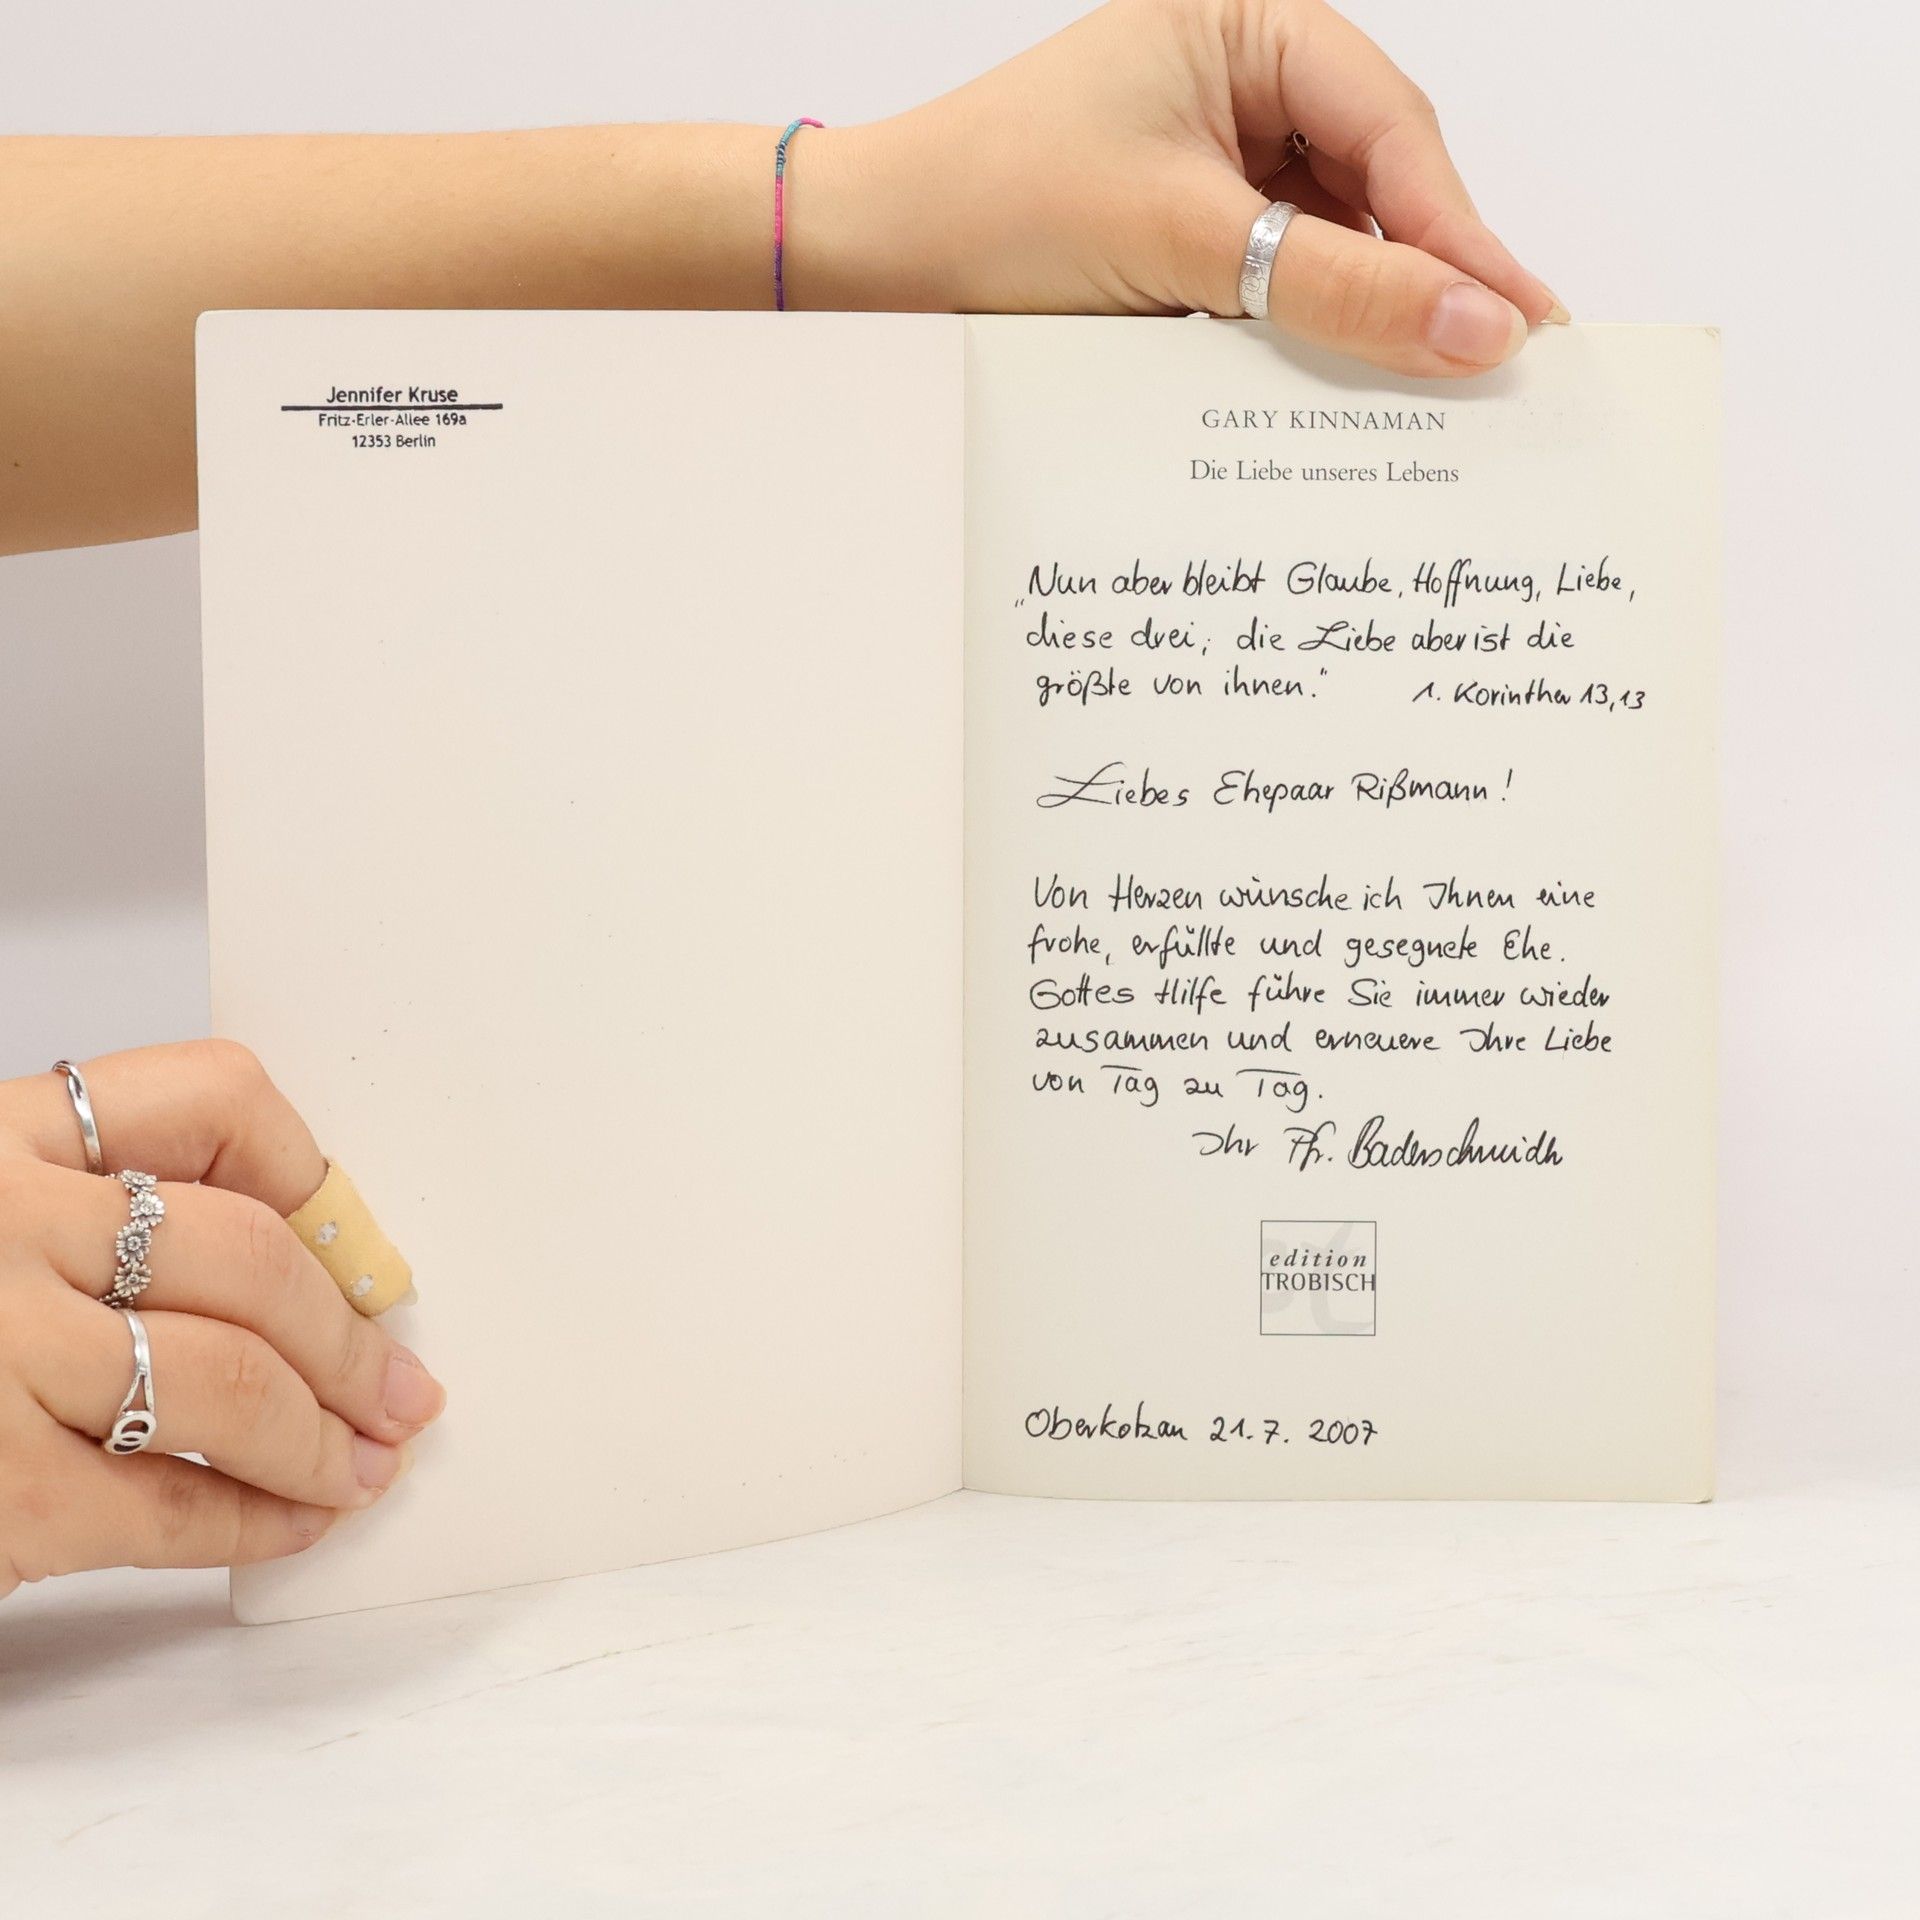 Jennifer Kruse
Fritz-Erler-Allee 169a
12353 Berlin
GARY KINNAMAN
Die Liebe unseres Lebens
„Nun aber bleibt Glaube, Hoffnung, Liebe,
diese drei; die Liebe aber ist die
größte von ihnen."
1. Korinther 13,13
Liebes Ehepaar Rißmann!
Von Herzen wünsche ich Ihnen eine
frohe, erfüllte und gesegnete Ehe.
Gottes Hilfe führe Sie immer wieder
zusammen und erneuere Ihre Liebe
von Tag zu Tag.
Ihr Pfr. Baderschmidt
edition
TROBISCH
Oberkotzau 21.7.2007